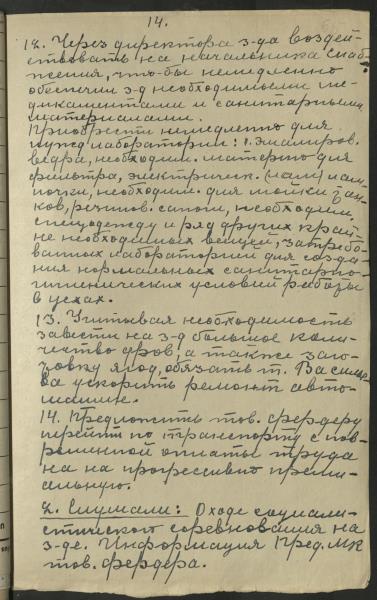 14.
12. Через директора з-да воздей-
ствовать на начальника снаб-
жения, что-бы немедленно
обеспечил з-д необходимыми ме-
дикаментами и санитарными
материалами.
Приобрести немедленно для
нужд лаборатории: 1. эмалиров.
ведра, необходим. материю для
фильтра, электрическ. лам-
почки, необходим. для мойки ба-
ков, резинов. сапоги, необходим.
спецодежду и ряд других край-
не необходимых вещей, затребо-
ванных лабораторией для созда-
ния нормальных санитарно-
гигиенических условий работы
в цехах.
13. Учитывая необходимость
завести на з-д большое коли-
чество дров, а также заго-
товку ягод, обязать т. Василье-
ва ускорить ремонт авто-
машин.
14. Предложить тов. Фердеру
перейти по транспорту с пов-
ременной оплаты труда
на на прогрессивно преми-
альную.
2. Слушали: О ходе социали-
стического соревнования на
з-де. Информация Пред. МК
тов. Фердера.